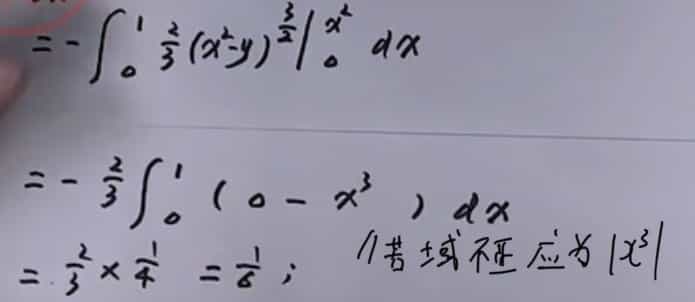 = - ∫₀¹ 2/3 (x²-y)^(3/2) |₀^(x²) dx
= - 2/3 ∫₀¹ ( 0 - x³ ) dx
= 2/3 × 1/4 = 1/6 ; //若域不正 应为 |x³|